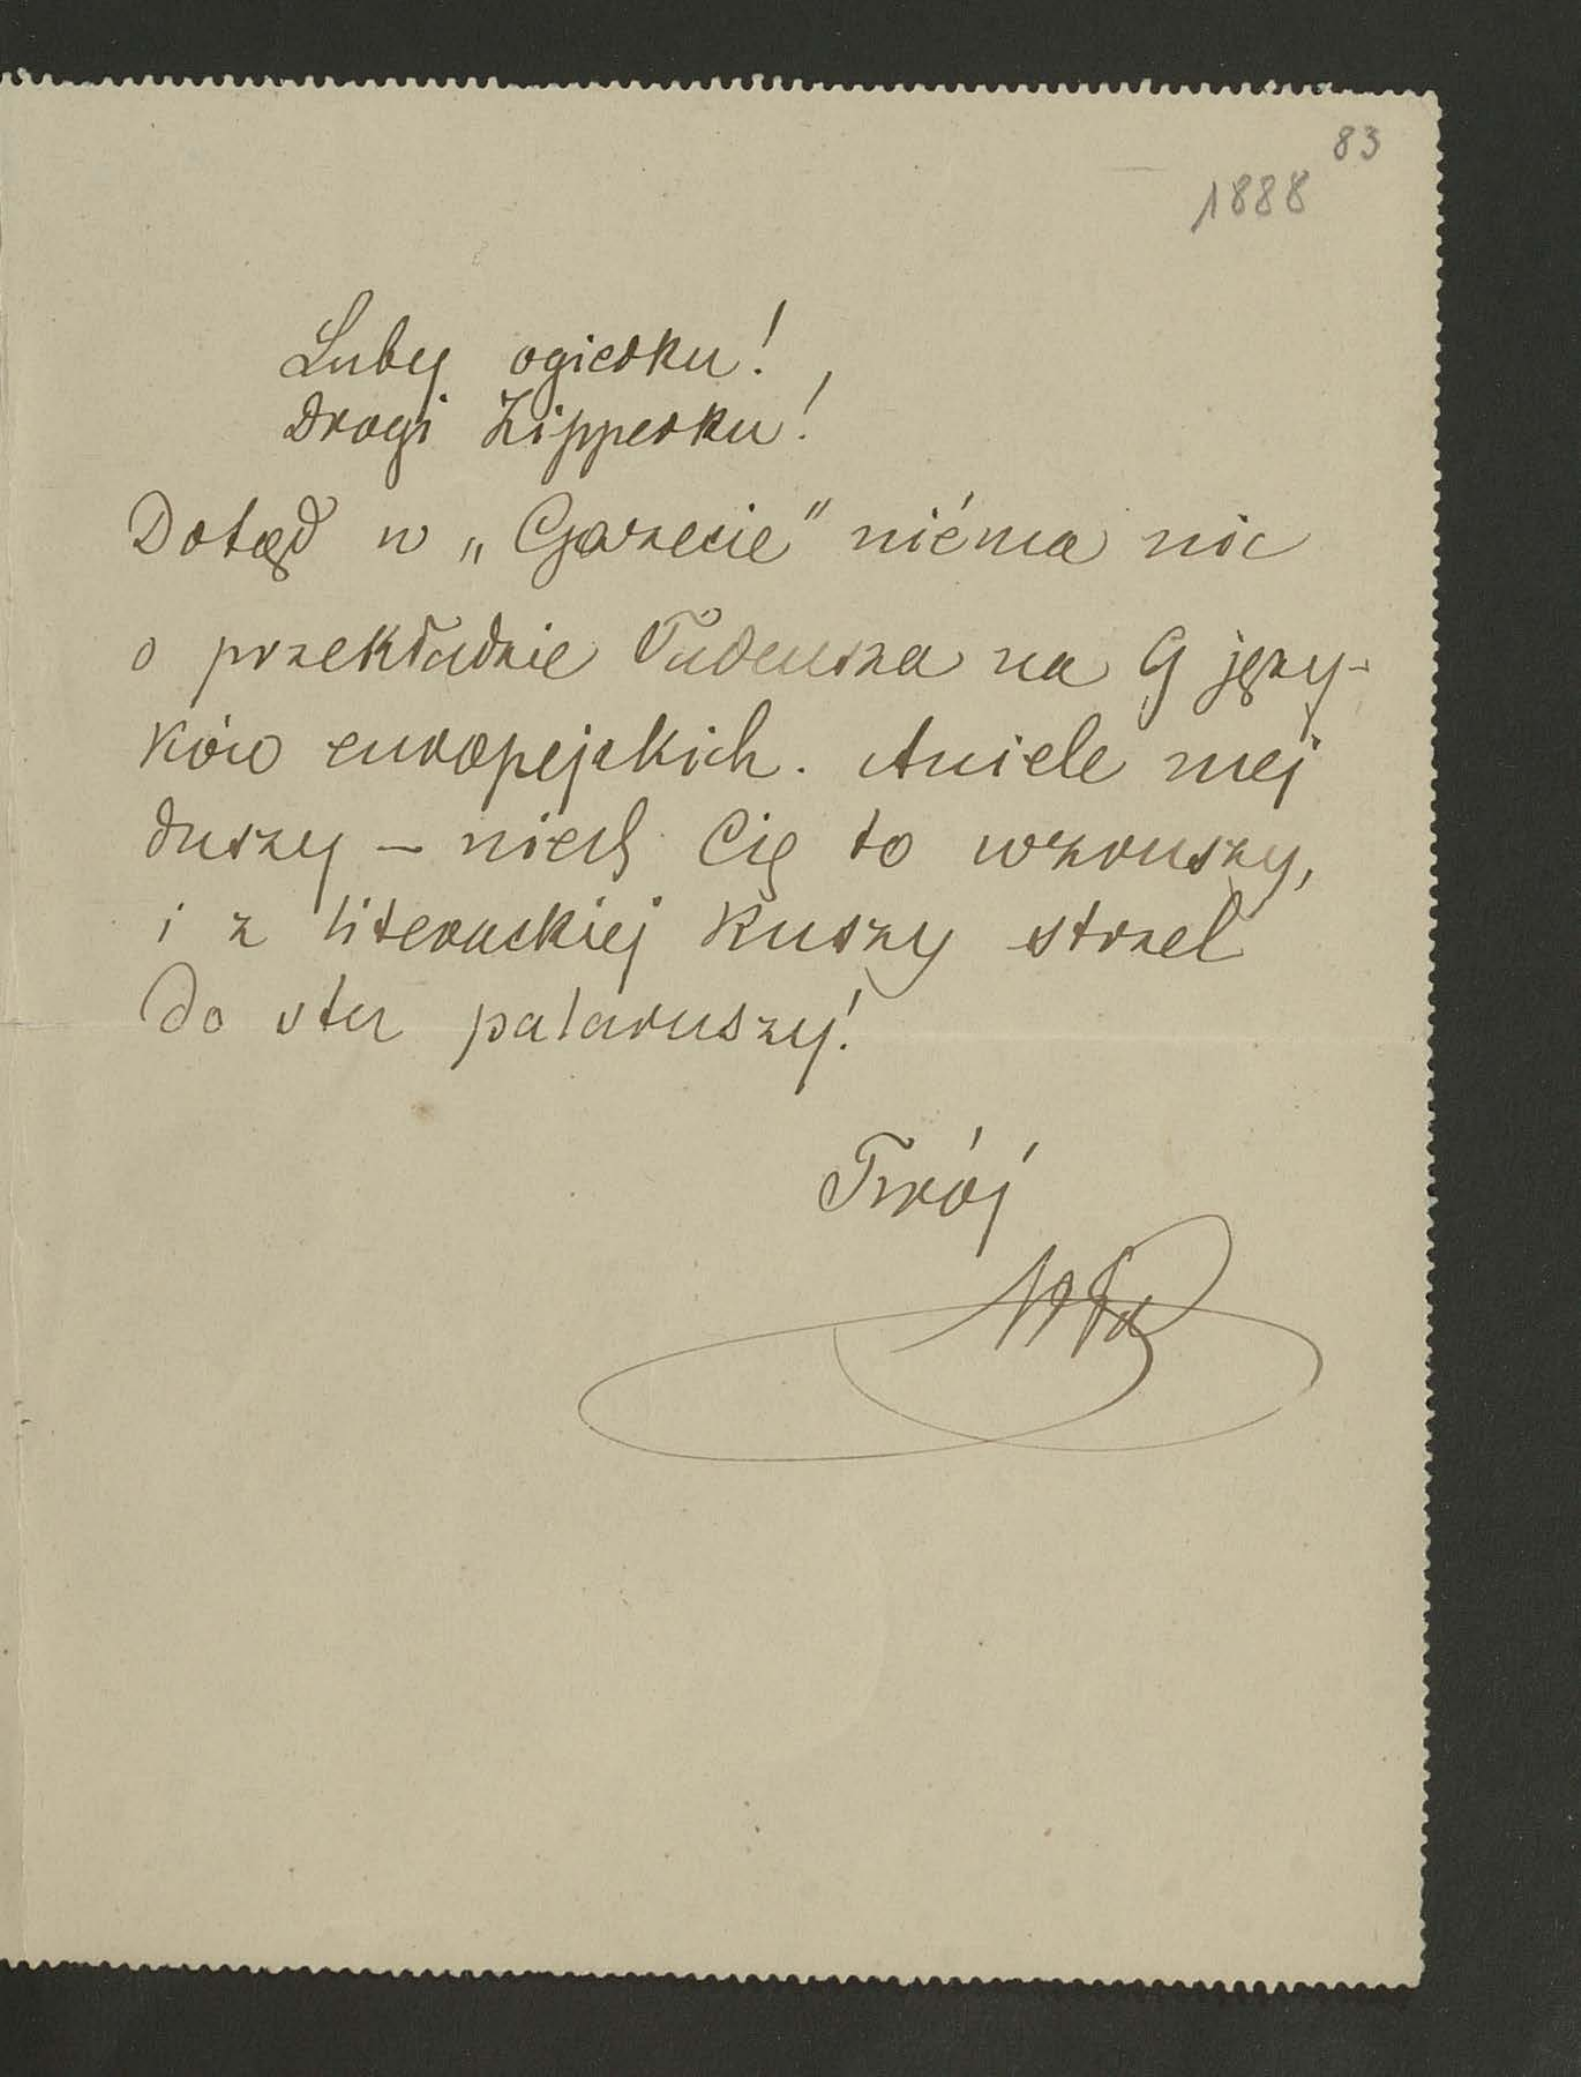 83
1888
Luby ogierku!
Drogi Zipperku!
Dotąd w „Gazecie" niéma nic
o przekładzie Tadeusza na 9 języ-
ków europejskich. Aniele mej
duszy – niech Cię to wzruszy,
i z literackiej kuszy strzel
do stu pataruszy!
Twój